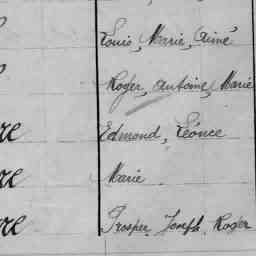 Louis, Marie, Aimé
Roger, Antoine, Marie
re Edmond, Léonce
re Marie
re Prosper, Joseph, Roger